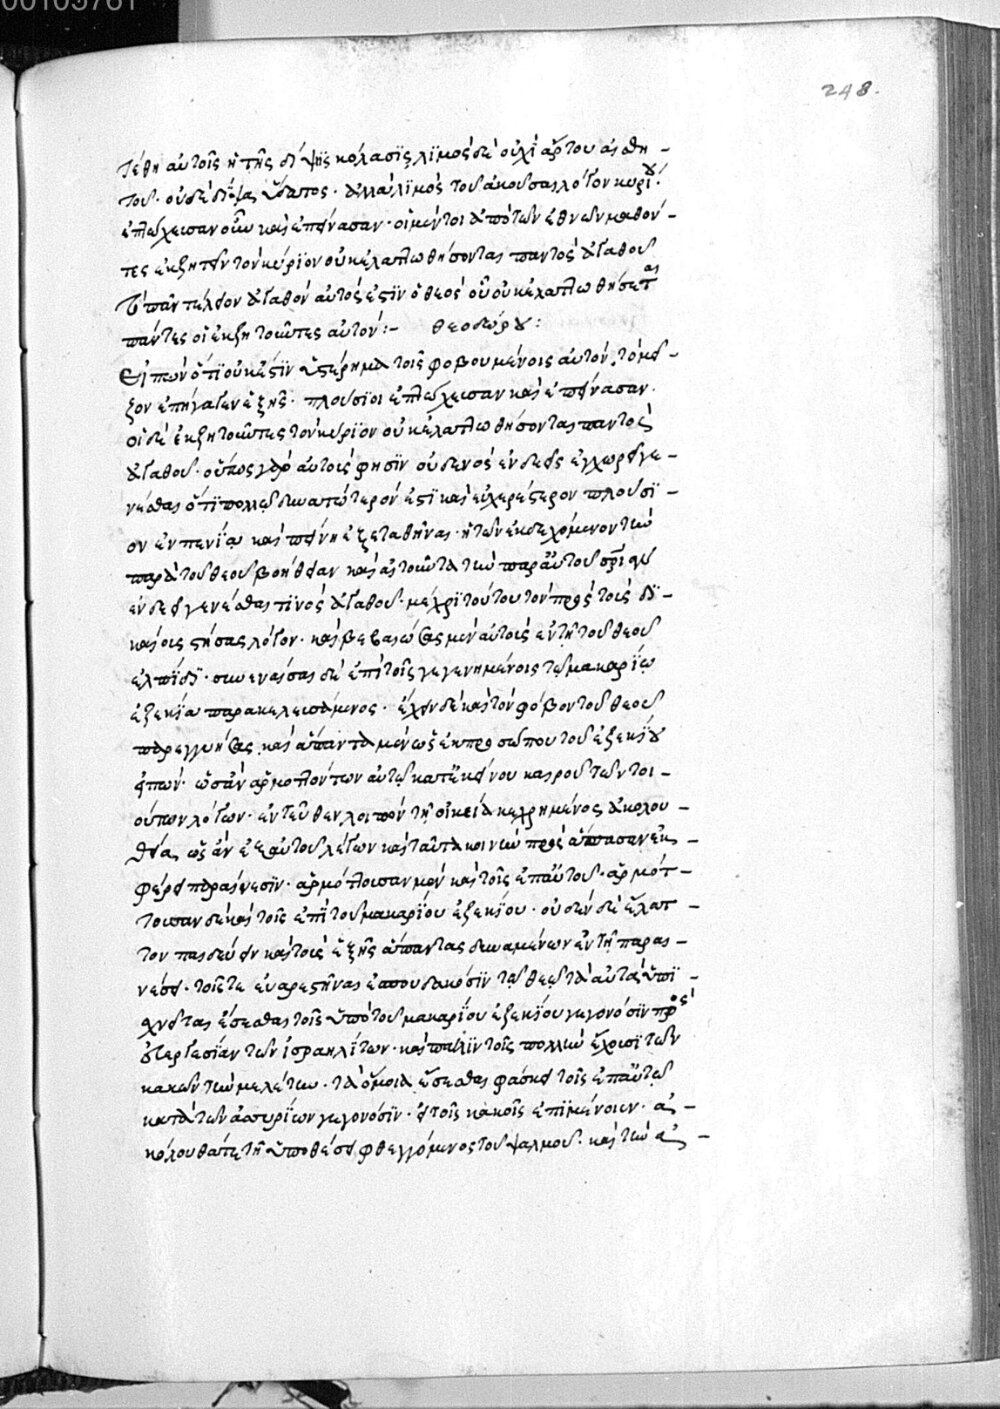 00105761
248.
τέθη αὐτοῖς ἡ τῆς δίψης κόλασϊς λϊμὸς δὲ οὐχὶ ἄρτου αἰσθη -
τοῦ· οὐδὲ δίψα ὕδατος· ἀλλὰ λϊμὸς τοῦ ἀκοῦσαι λόγον κυρίου·
ἐπτώχευσαν οὖν καὶ ἐπείνασαν· οἱ μέντοι ἀπὸ τῶν ἐθνῶν μαθόν -
τες ἐκζητεῖν τὸν κύρϊον οὐκ ἐλαττωθήσονται παντὸς ἀγαθοῦ
τὸ παντέλειον ἀγαθὸν αὐτός ἐστϊν ὁ θεὸς οὗ οὐκ ἐλαττωθήσονται
πάντες οἱ ἐκζητοῦντες αὐτόν :- θεοδώρου :
Εἰπὼν ὅτϊ οὐκ ἔστϊν ὑστέρημα τοῖς φοβουμένοις αὐτόν, τὸ μεῖ -
ζον ἐπήγαγεν ἑξῆς· πλούσϊοι ἐπτώχευσαν καὶ ἐπείνασαν·
οἱ δὲ ἐκζητοῦντες τὸν κύρϊον οὐκ ἐλαττωθήσονται παντὸς
ἀγαθοῦ· οὕτως γὰρ αὐτοὺς φησϊν οὐδενὸς ἐνδεεῖς ἐγχωρεῖ γε -
νέσθαι ὅτϊ πολλῷ δυνατώτερόν ἐστϊ καὶ εὐχερέστερον πλούσϊ -
ον ἐν πενίᾳ καὶ πείνῃ ἐξετασθῆναι· ἢ τῶν ἐκδεχόμενον τὴν
παρὰ τοῦ θεοῦ βοήθειαν καὶ αἰτοῦντα τὴν παρ' αὐτοῦ
ἐνδεεῖ γενέσθαι τϊνὸς ἀγαθοῦ· μέχρϊ τούτου τὸν πρὸς τοὺς δϊ -
καίους στήσας λόγον· καὶ βεβαιώσας μὲν αὐτοὺς ἐν τῇ τοῦ θεοῦ
ἐλπίδϊ· συναινέσας δὲ ἐπὶ τοῖς γεγενημένοις τῷ μακαρίῳ
ἐξεκίᾳ παρακελευσάμενος· ἔχειν δὲ καὶ τὸν φόβον τοῦ θεοῦ
παρεγγυήσας καὶ ἅπαντα μὲν ὡς ἐκ προσώπου τοῦ ἐξεκίου
εἰπών· ὡσὰν ἁρμοττόντων αὐτῷ κατ' ἐκείνου καιροῦ τῶν τοι -
ούτων λόγων· ἐντεῦθεν λοιπὸν τῇ οἰκείᾳ κεχρημένος ἀκολου -
θίᾳ, ὡς ἂν ἐξ αὐτοῦ λέγων καὶ ταῦτα κοινὴν πρὸς ἅπαντας ἐκ -
φέρει παραίνεσϊν· ἁρμόττουσαν μὲν καὶ τοῖς ἐπ' αὐτοῦ· ἁρμότ -
τουσαν δὲ καὶ τοῖς ἐπὶ τοῦ μακαρίου ἐξεκίου· οὐδὲν δὲ ἔλατ -
τον παιδεύειν καὶ τοὺς ἑξῆς ἅπαντας δυναμένων ἐν τῇ παραι -
νέσει· τοῖς τε εὐαρεστῆναι ἐσπουδακόσϊν τῷ θεῷ τὰ αὐτὰ ὑπϊ -
χνεῖται ἔσεσθαι τοῖς ὑπὸ τοῦ μακαρίου ἐξεκίου γεγονόσϊν πρὸς
εὐεργεσίαν τῶν ἰσραηλίτων· καὶ πάλϊν τοῖς πολλὴν ἔχουσϊ τῶν
κακῶν τὴν μελέτην· τὰ ὅμοια ἔσεσθαι φάσκει τοῖς ἐπ' αὐτῷ
κατὰ τῶν ἀσυρίων γεγονόσϊν· εἰ τοῖς κακοῖς ἐπϊμένοιεν· ἀ -
κόλουθά τε τῇ ὑποθέσει φθεγγόμενος τοῦ ψαλμοῦ· καὶ τὴν ἀ -